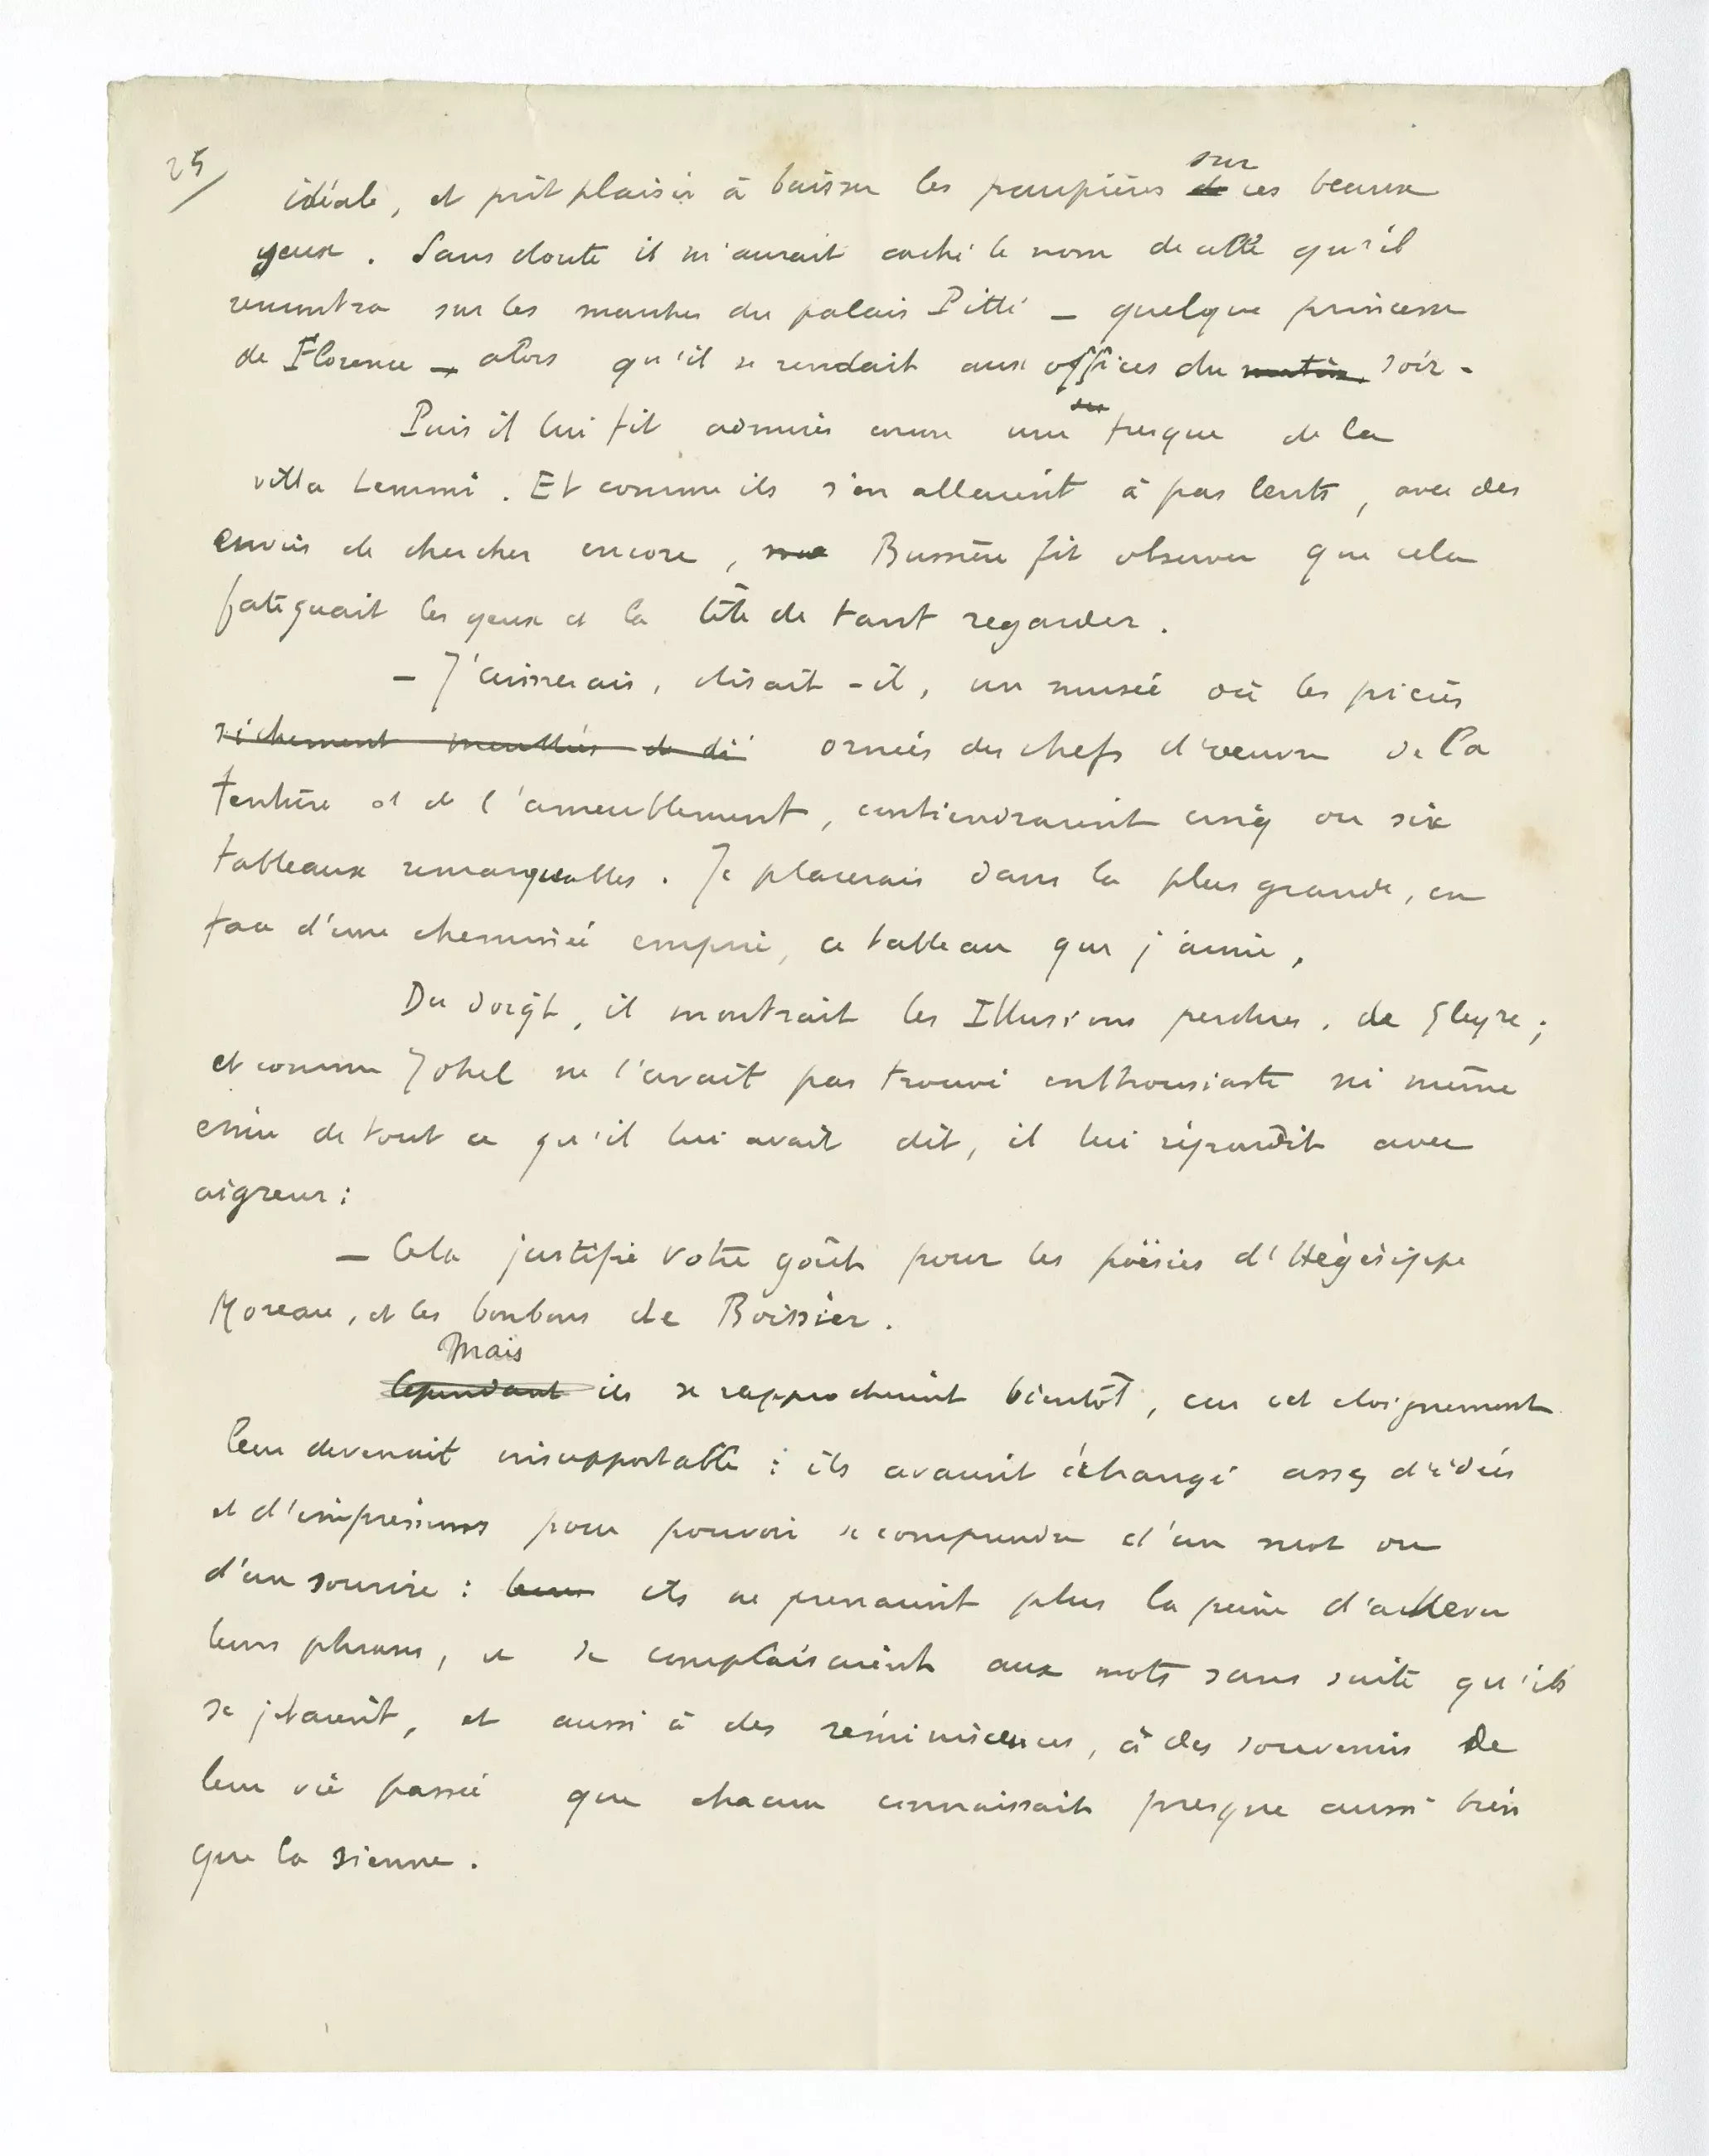 25/
idéale, et prit plaisir à baisser les paupières sur ces beaux
yeux. Sans doute il m'aurait caché le nom de celle qu'il
rencontra sur les marches du palais Pitti — quelque princesse
de Florence — alors qu'il se rendait aux offices du matin soir.
Puis il lui fit admirer encore une fresque de la
villa Lemmi. Et comme ils s'en allaient à pas lents, avec des
envies de chercher encore, Bussère fit observer que cela
fatiguait les yeux et la tête de tant regarder.
— J'aimerais, disait-il, un musée où les pièces
richement meublées et dé ornées des chefs d'œuvre de la
tenture et de l'ameublement, contiendraient cinq ou six
tableaux remarquables. Je placerais dans la plus grande, en
face d'une cheminée empire, ce tableau que j'aime.
Du doigt, il montrait les Illusions perdues, de Gleyre;
et comme Johel ne l'avait pas trouvé enthousiaste ni même
ému de tout ce qu'il lui avait dit, il lui répondit avec
aigreur:
— Cela justifie votre goût pour les poësies d'Hégésippe
Moreau, et les bonbons de Boissier.
Mais
Cependant ils se rapprochaient bientôt, car cet éloignement
leur devenait insupportable: ils avaient échangé assez d'idées
et d'impressions pour pouvoir se comprendre d'un mot ou
d'un sourire: leurs ils ne prenaient plus la peine d'achever
leurs phrases, et se complaisaient aux mots sans suite qu'ils
se jetaient, et aussi à des réminiscences, à des souvenirs de
leur vie passée que chacun connaissait presque aussi bien
que la sienne.